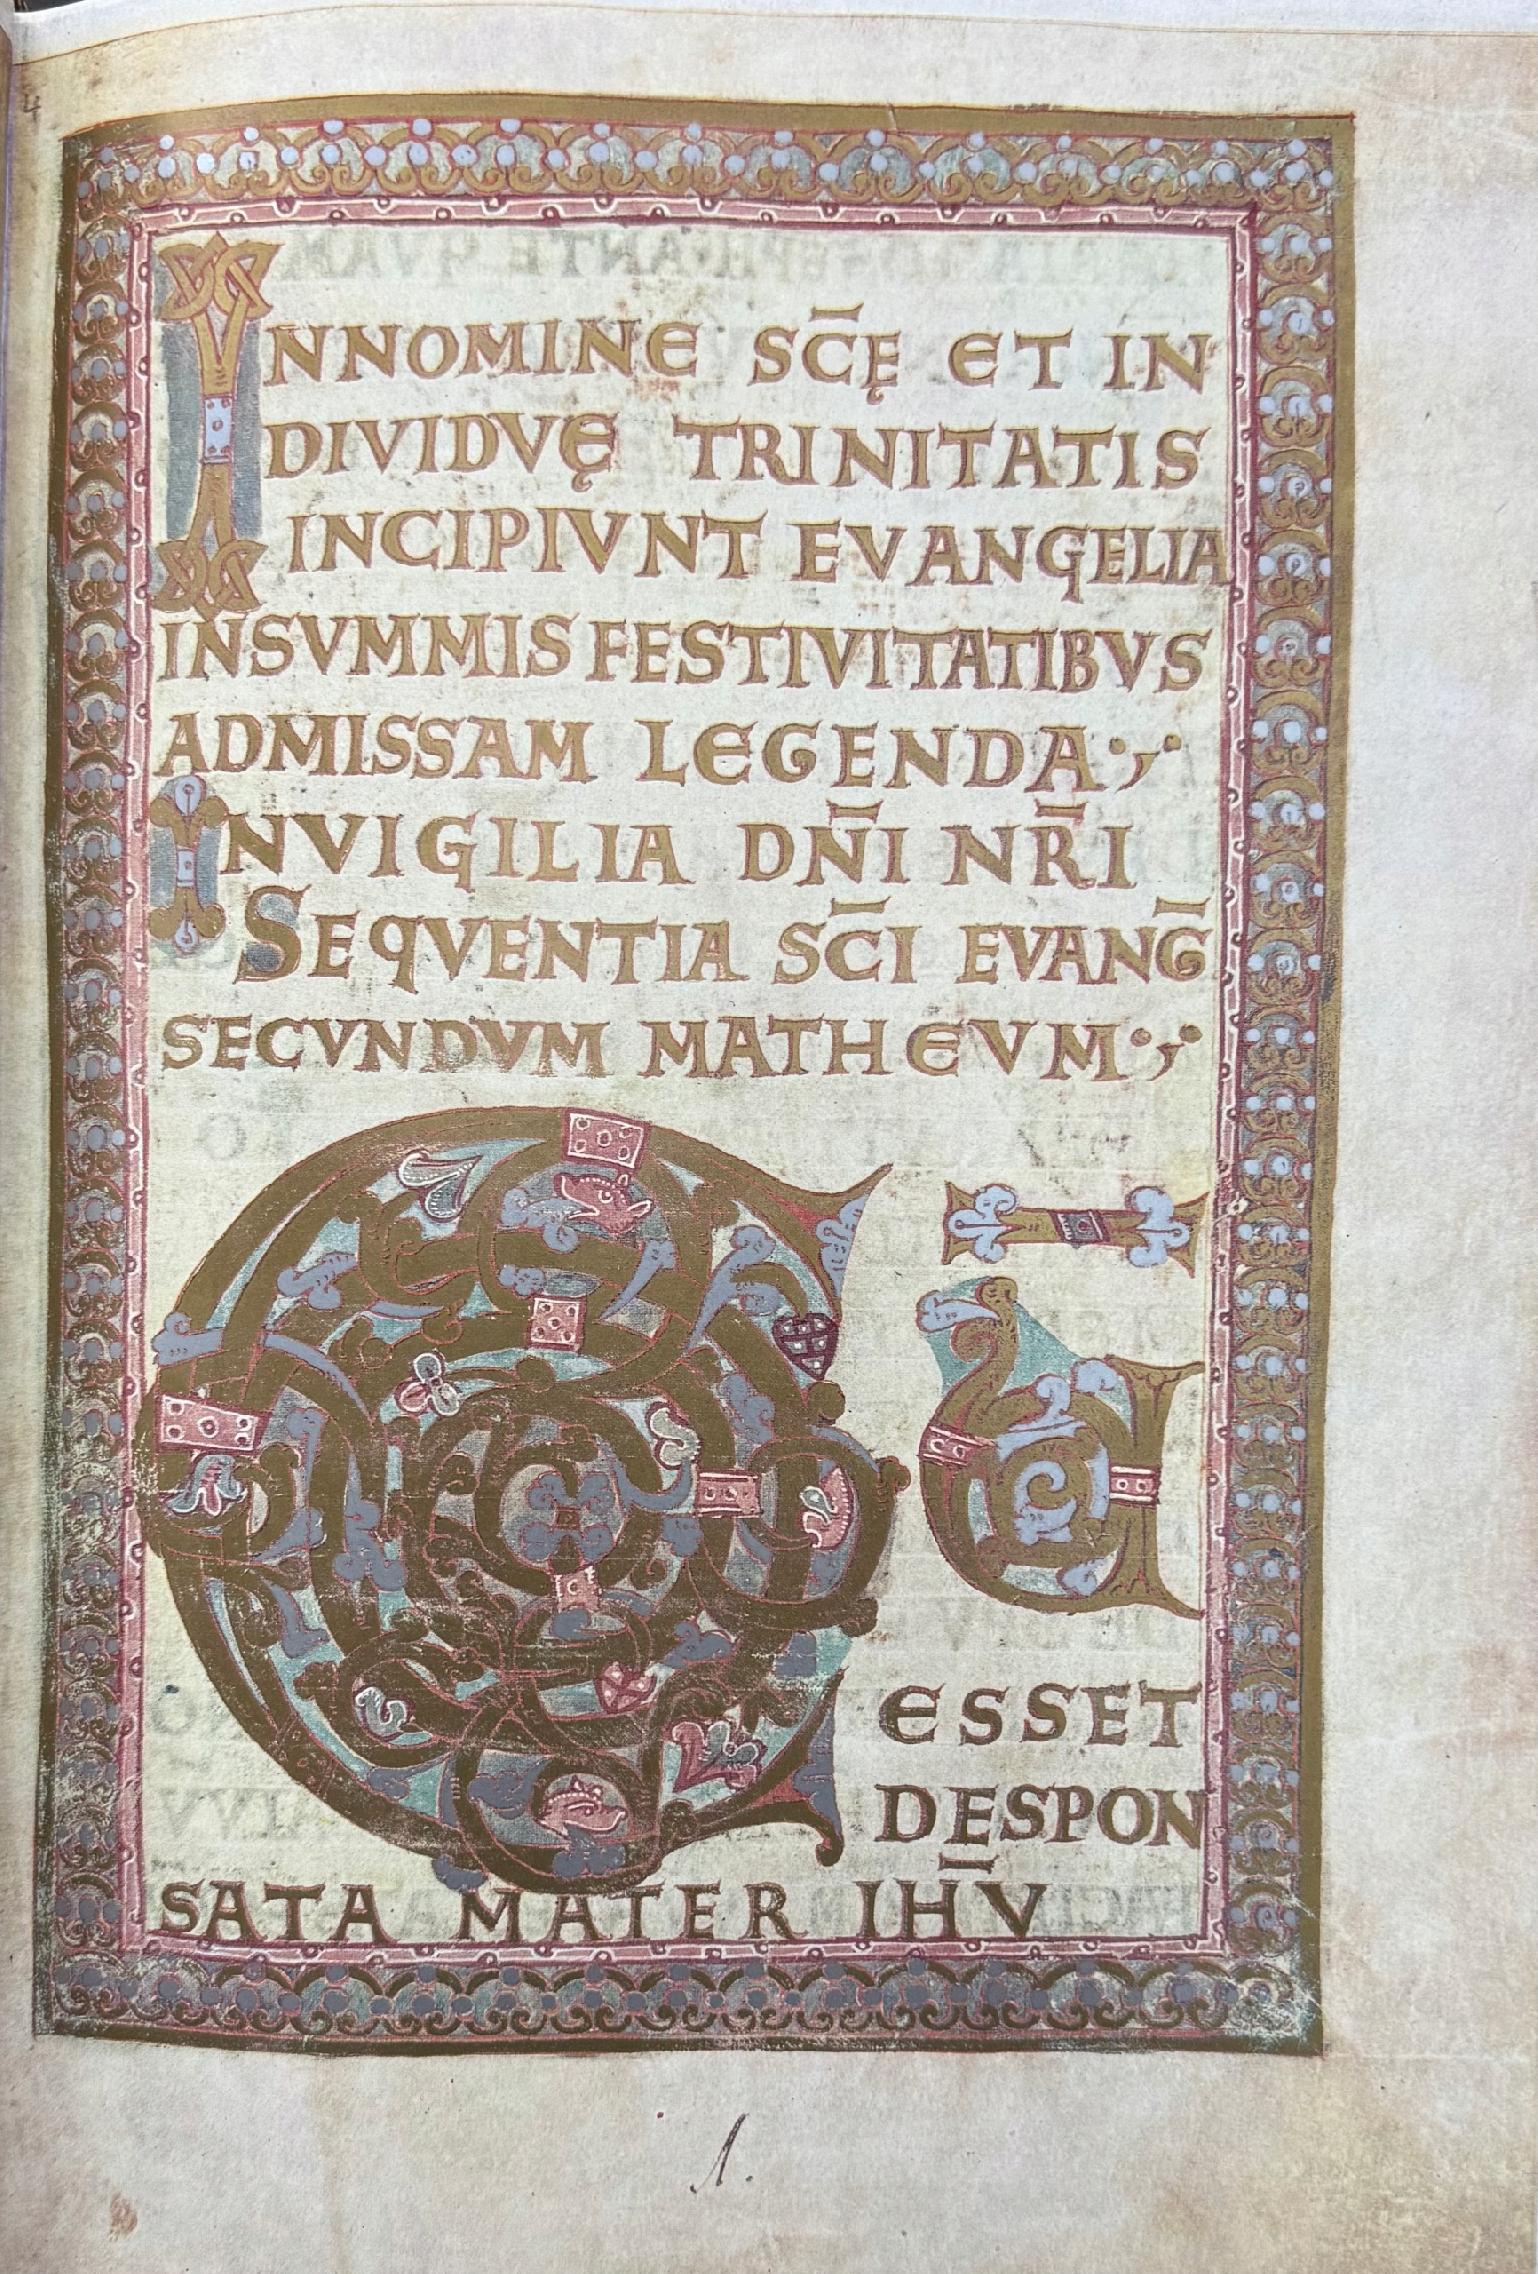 INNOMINE SC̄Ę ET IN
DIVIDVĘ TRINITATIS
INCIPIVNT EVANGELIA
INSVMMIS FESTIVITATIBVS
ADMISSAM LEGENDA·,·
INVIGILIA DN̄I NR̄I
SEQVENTIA SC̄I EVANḠ
SECVNDVM MATHEVM·,·
CŪ
ESSET
DESPON
SATA MATER IH̄V
1.